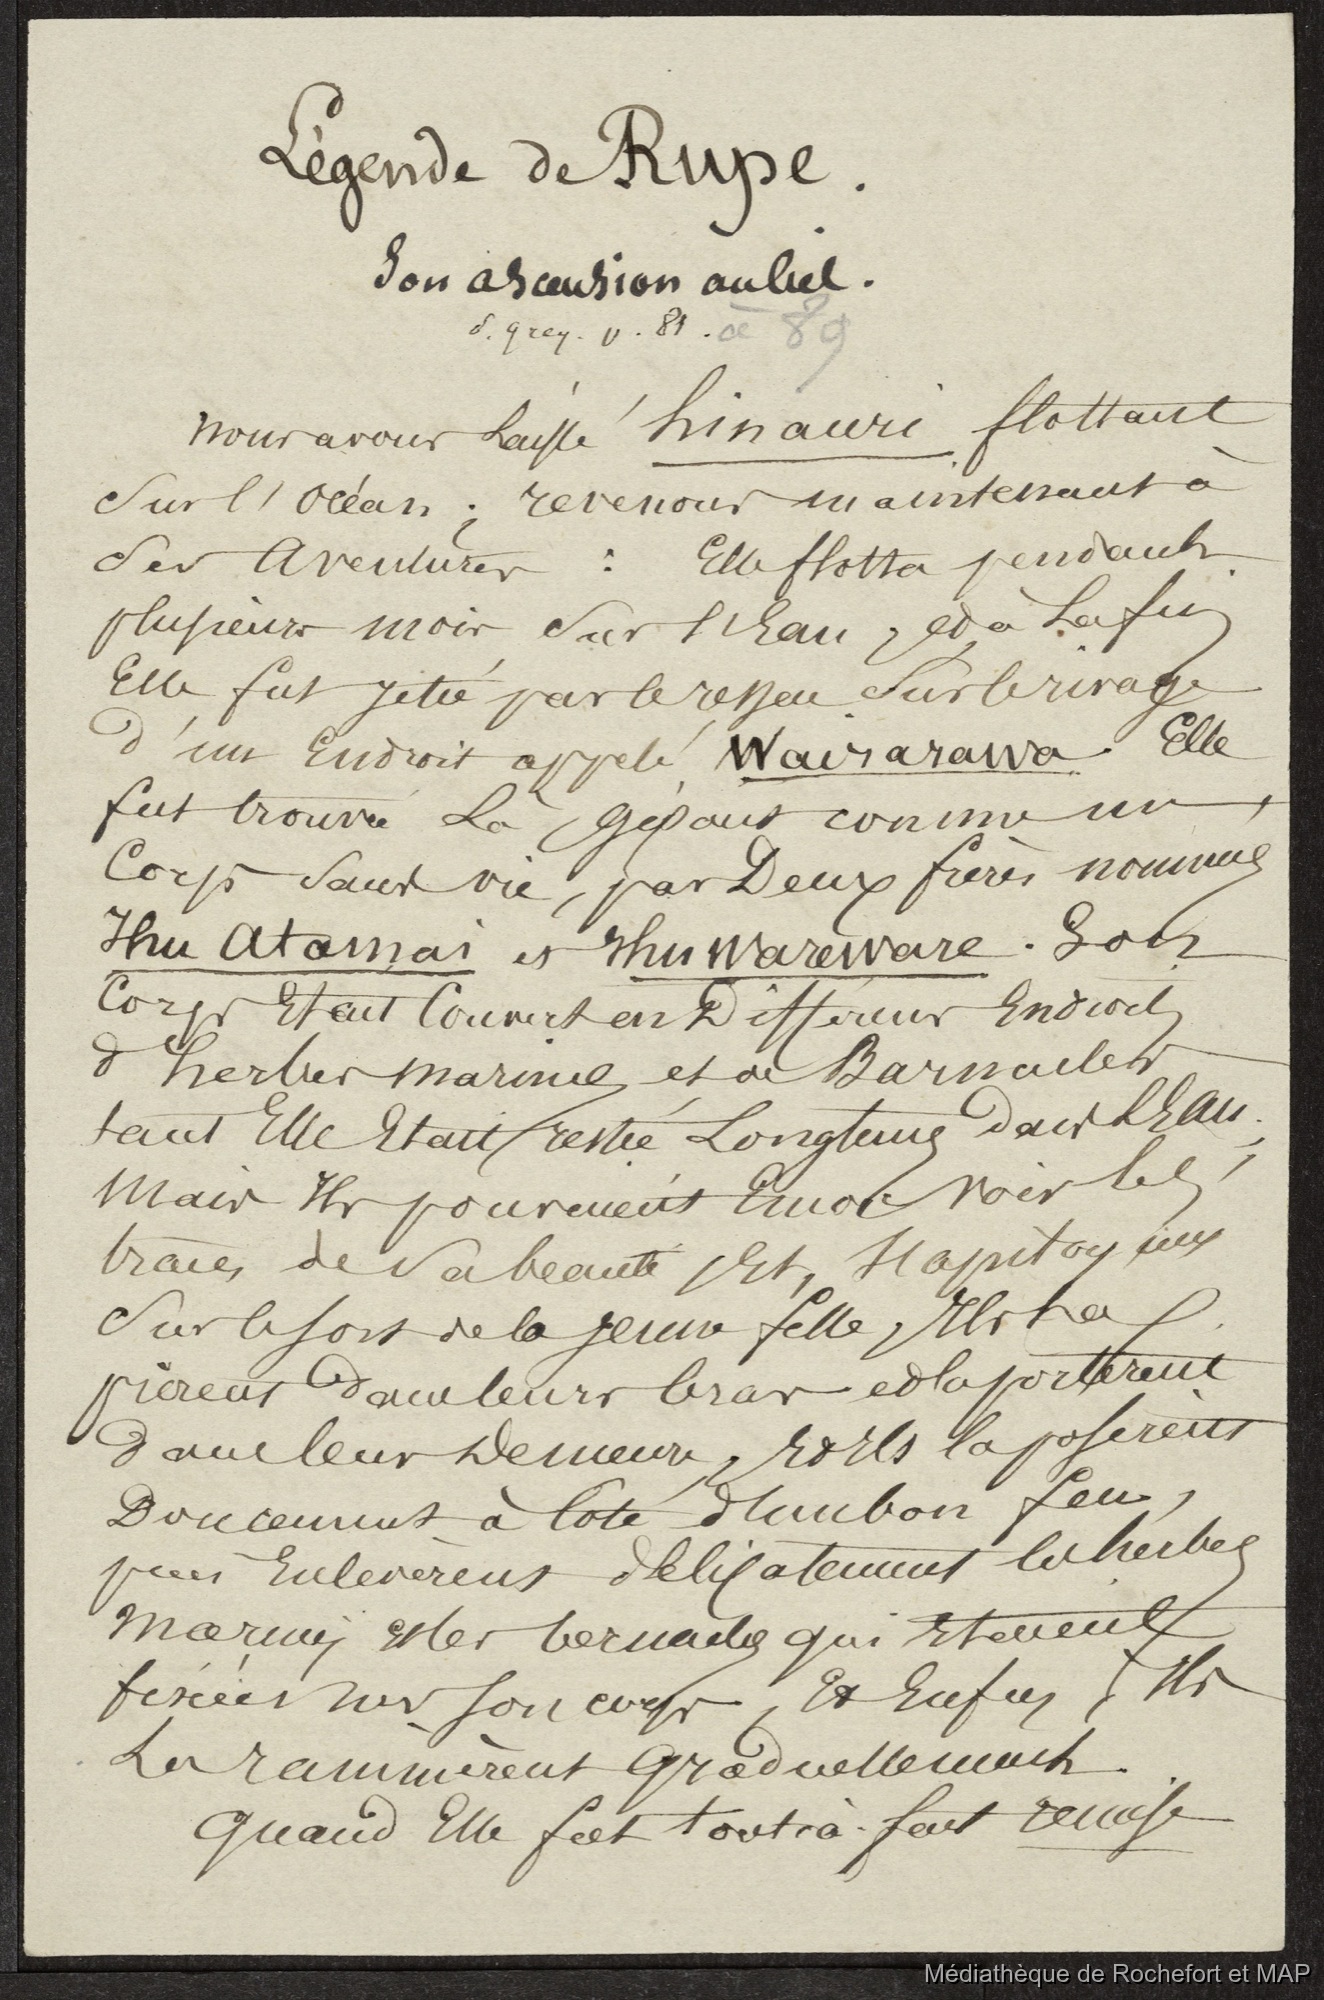 Légende de Rupe.
Son ascension au Ciel.
S. grey. p. 81. à 89
nous avons laissé hinauri flottant
Sur l'Océan ; revenons maintenant à
Ses Aventures : Elle flotta pendant
plusieurs mois Sur l'Eau, et à La fin
Elle fut jetée par le ressac Sur le rivage
d'un Endroit appelé Wairarawa. Elle
fut trouvée Là, gisant comme un
Corps Sans vie, par Deux frères nommés
Ihu Atamai et Ihu Wareware. Son
Corps Etait Couvert en Différens Endroits
d'herbes marines et de Barnacles
tant Elle Etait restée Longtems dans L'Eau ;
Mais Ils pouvaient Encor voir les
traces de Sa beauté, Et, S'apitoyant
Sur le sort de la jeune fille, Ils La
prirent dans leurs bras et la portèrent
dans leur Demeure, Et Ils la posèrent
Doucement à Coté d'un bon feu,
puis Enlevèrent délicatement les herbes
Marines et les bernacles qui Etaient
fixées sur son corps, Et Enfin, Ils
La ranimèrent graduellement.
Quand Elle fut tout-à-fait remise
Médiathèque de Rochefort et MAP